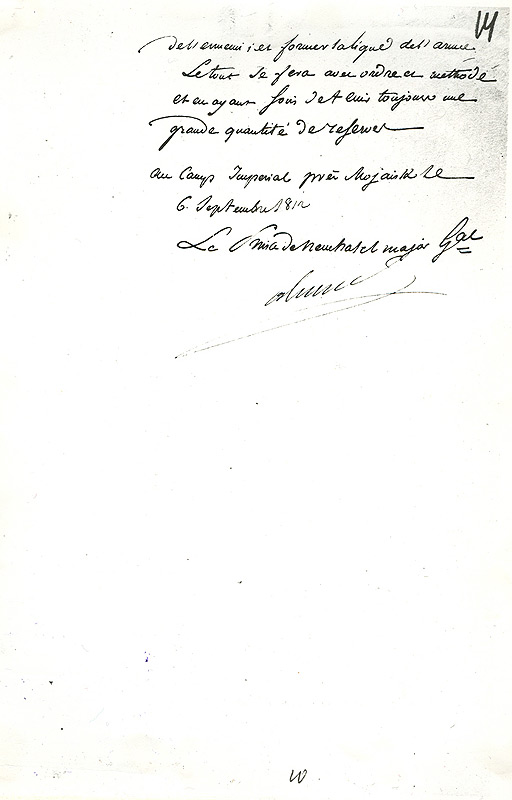 14
de l'ennemi et former la ligne de l'armée
Le tout se fera avec ordre et methode
et en ayant soin de tenir toujours une
grande quantité de reserves
au Camp Imperial près Mojaisk le
6. Septembre 1812
Le Prince de Neuchatel major Gal
10